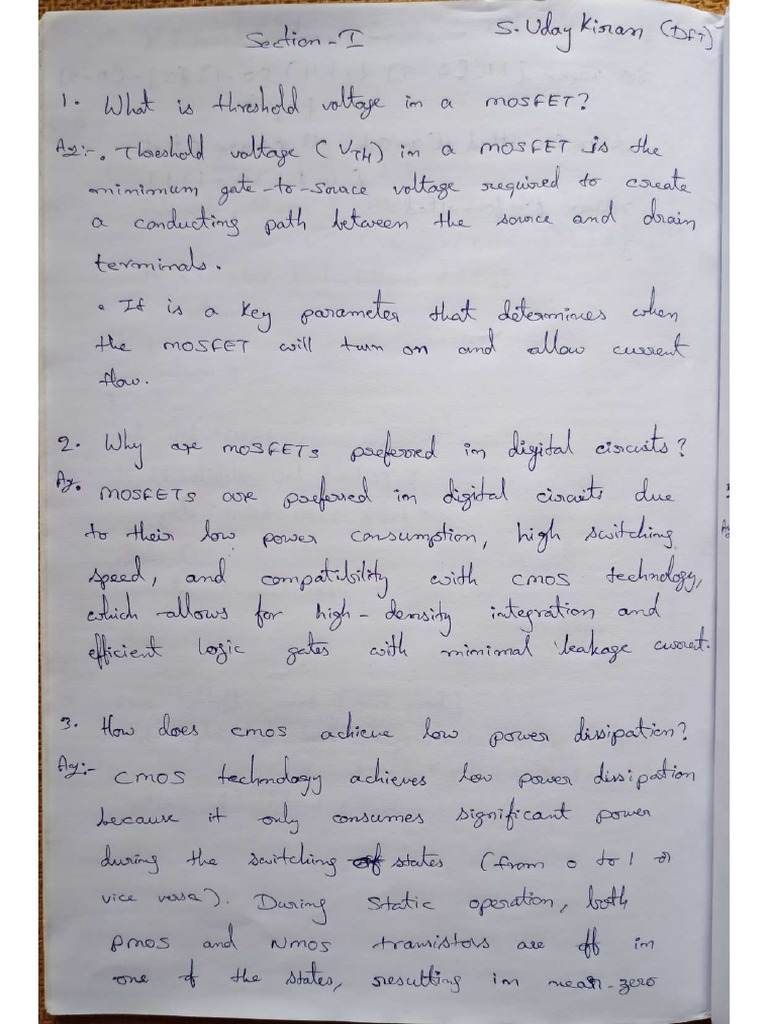 Section - I
S. Uday Kiran (DFT)
1. What is threshold voltage in a MOSFET?
• Threshold voltage (VTH) in a MOSFET is the
minimum gate-to-source voltage required to create
a conducting path between the source and drain
terminals.
• It is a key parameter that determines when
the MOSFET will turn on and allow current
flow.
2. Why are MOSFETs preferred in digital circuits?
MOSFETs are preferred in digital circuits due
to their low power consumption, high switching
speed, and compatibility with CMOS technology,
which allows for high-density integration and
efficient logic gates with minimal leakage current.
3. How does CMOS achieve low power dissipation?
CMOS technology achieves low power dissipation
because it only consumes significant power
during the switching states (from 0 to 1 or
vice versa). During static operation, both
PMOS and NMOS transistors are off in
one of the states, resulting in near-zero